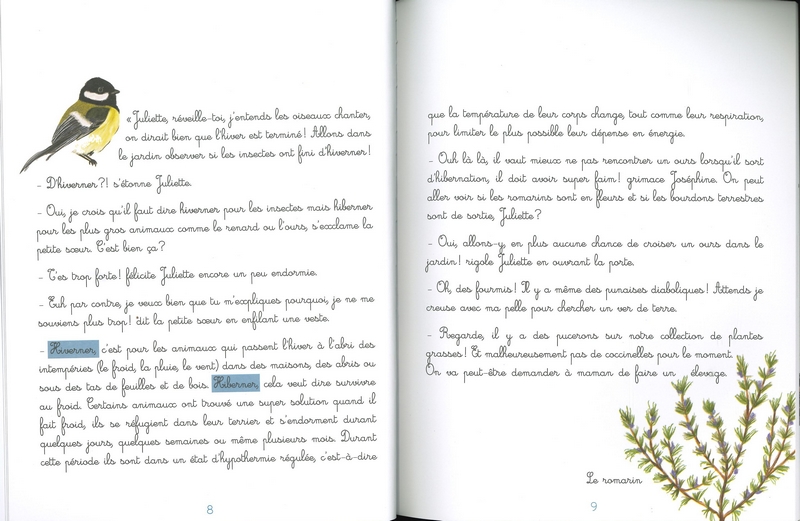 « Juliette, réveille-toi, j'entends les oiseaux chanter,
on dirait bien que l'hiver est terminé ! Allons dans
le jardin observer si les insectes ont fini d'hiverner !
- D'hiverner ?! s'étonne Juliette.
- Oui, je crois qu'il faut dire hiverner pour les insectes mais hiberner
pour les plus gros animaux comme le renard ou l'ours, s'exclame la
petite sœur. C'est bien ça ?
- T'es trop forte ! félicite Juliette encore un peu endormie.
- Euh par contre, je veux bien que tu m'expliques pourquoi, je ne me
souviens plus trop ! dit la petite sœur en enfilant une veste.
- Hiverner, c'est pour les animaux qui passent l'hiver à l'abri des
intempéries (le froid, la pluie, le vent) dans des maisons, des abris ou
sous des tas de feuilles et de bois. Hiberner, cela veut dire survivre
au froid. Certains animaux ont trouvé une super solution quand il
fait froid, ils se réfugient dans leur terrier et s'endorment durant
quelques jours, quelques semaines ou même plusieurs mois. Durant
cette période ils sont dans un état d'hypothermie régulée, c'est-à-dire
8
que la température de leur corps change, tout comme leur respiration,
pour limiter le plus possible leur dépense en énergie.
- Ouh là là, il vaut mieux ne pas rencontrer un ours lorsqu'il sort
d'hibernation, il doit avoir super faim ! grimace Joséphine. On peut
aller voir si les romarins sont en fleurs et si les bourdons terrestres
sont de sortie, Juliette ?
- Oui, allons-y, en plus aucune chance de croiser un ours dans le
jardin ! rigole Juliette en ouvrant la porte.
- Oh, des fourmis ! Il y a même des punaises diaboliques ! Attends je
creuse avec ma pelle pour chercher un ver de terre.
- Regarde, il y a des pucerons sur notre collection de plantes
grasses ! Et malheureusement pas de coccinelles pour le moment.
On va peut-être demander à maman de faire un élevage.
Le romarin
9